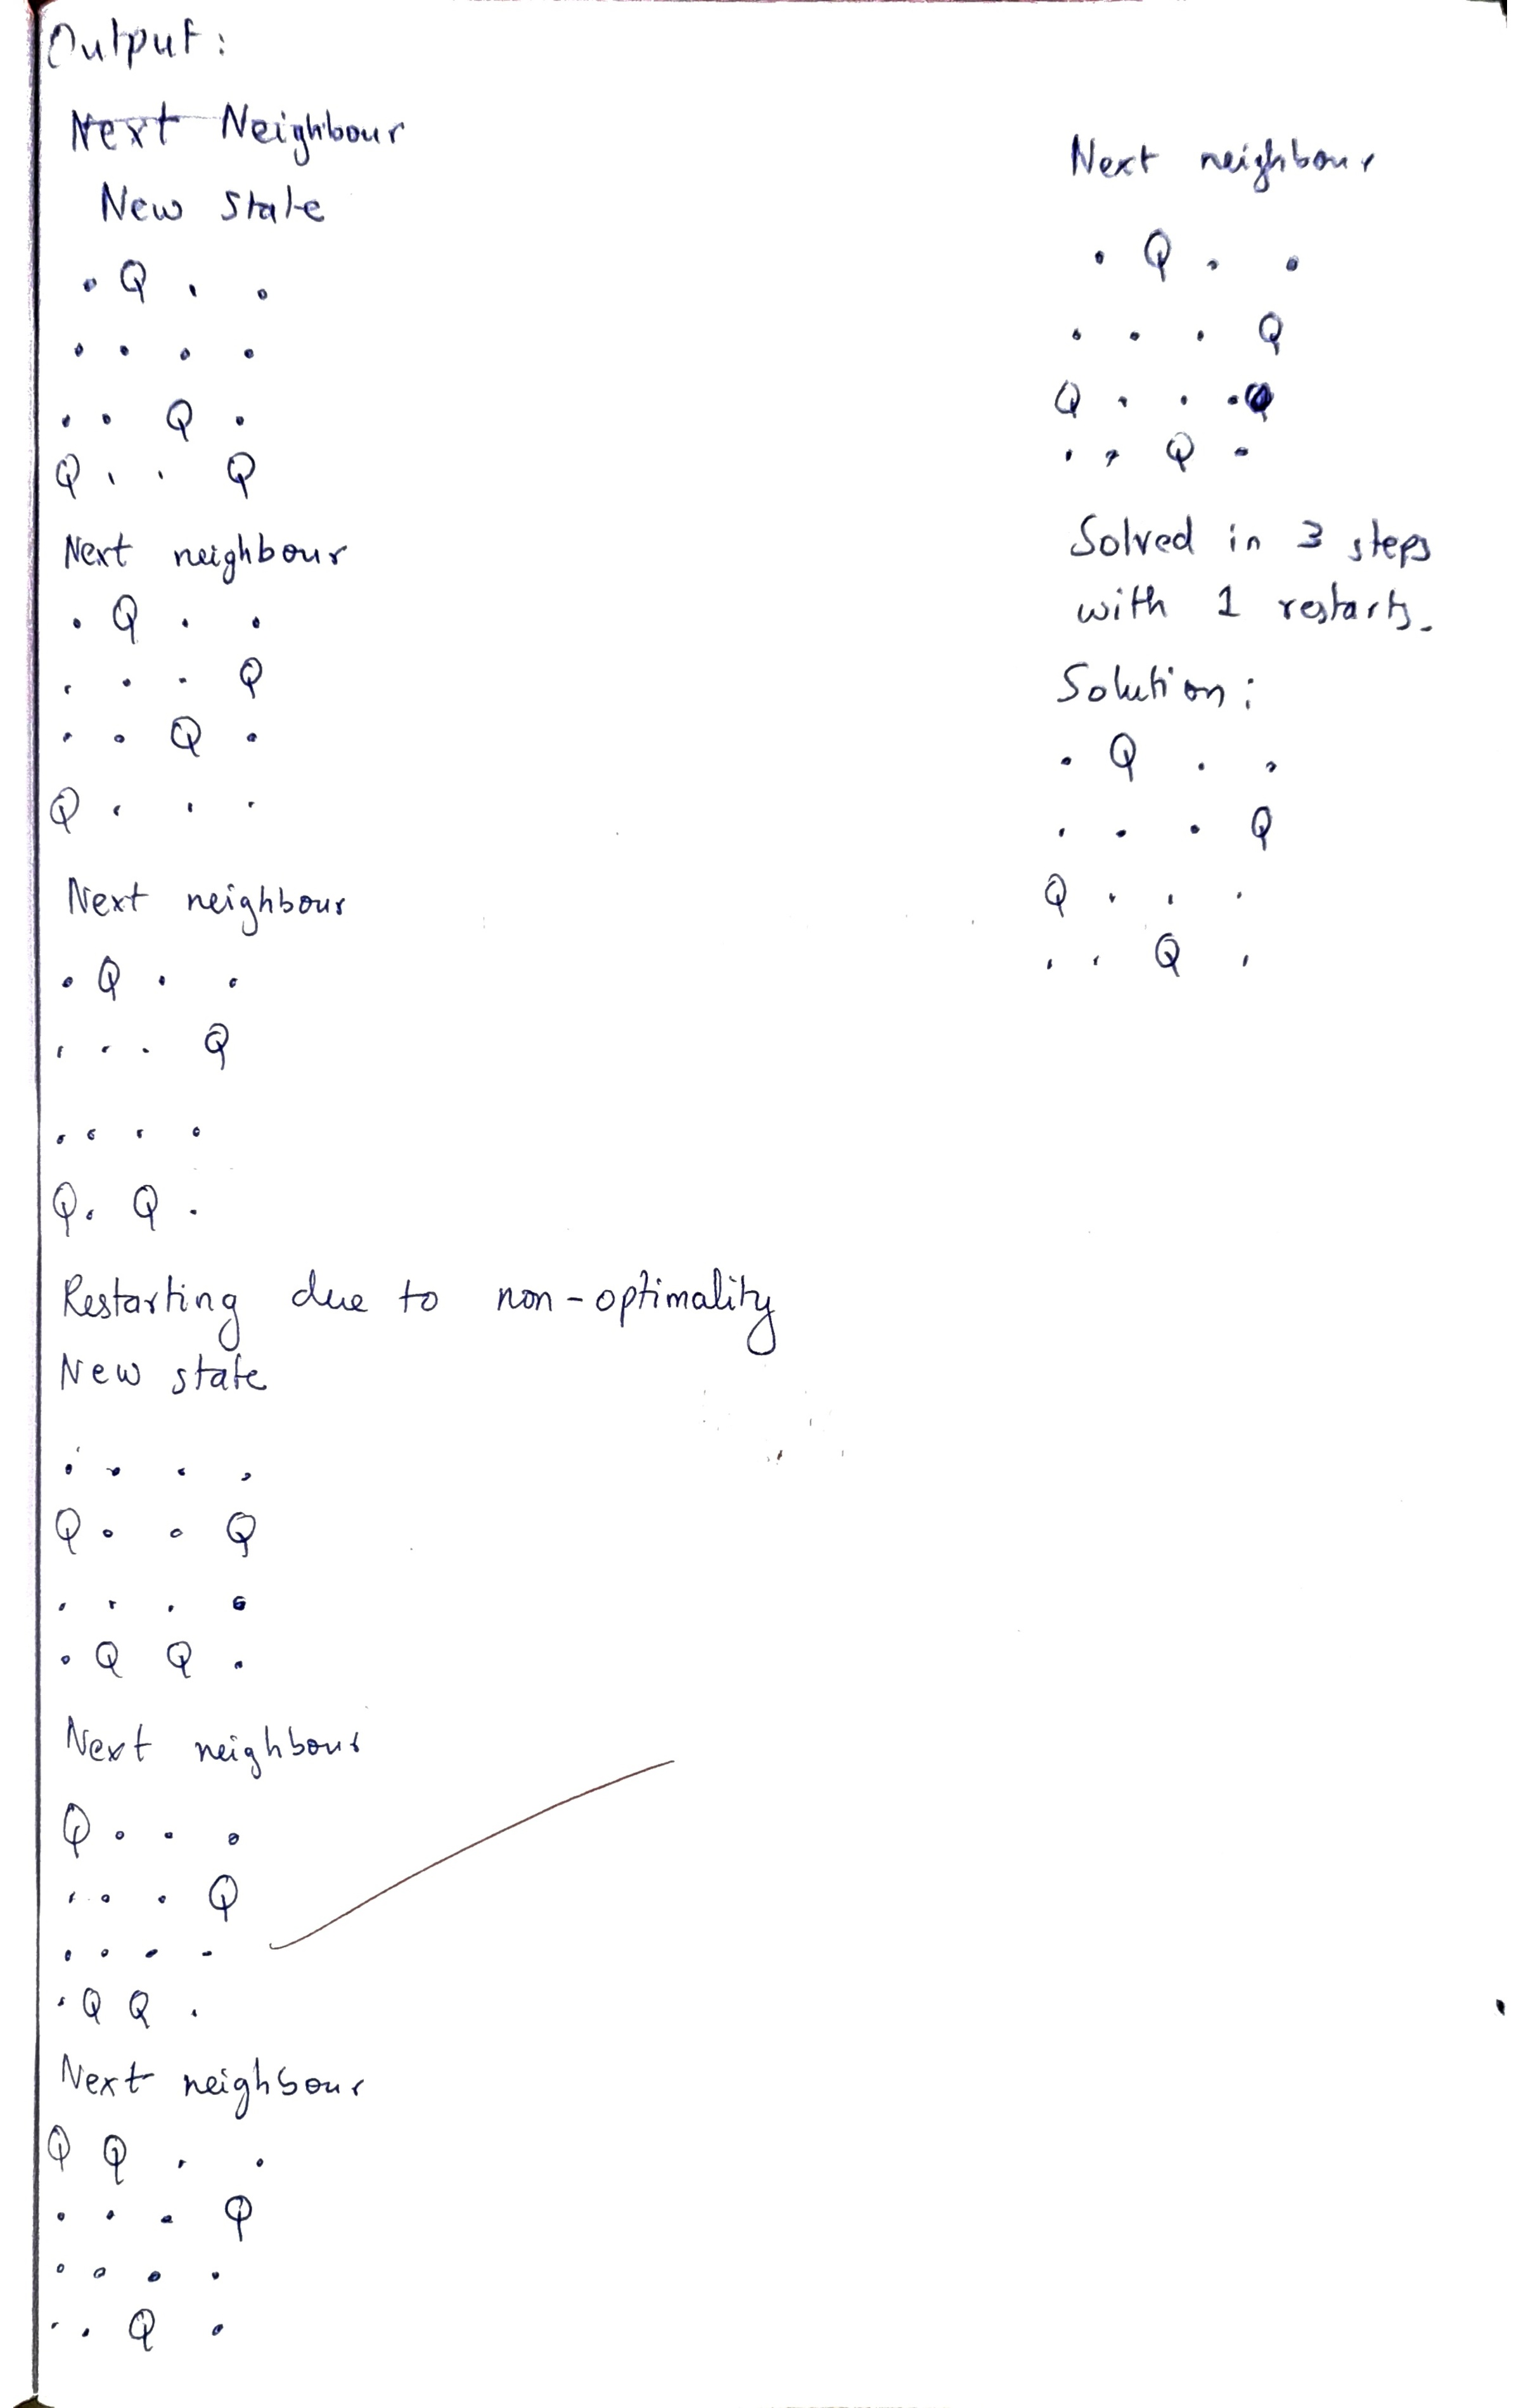 Output:
Next Neighbour
New state
. Q . .
. . . .
. . Q .
Q . . Q
Next neighbour
. Q . .
. . . Q
. . Q .
Q . . .
Next neighbour
. Q . .
. . . Q
. . . .
Q . Q .
Restarting due to non-optimality
New state
. . . .
Q . . Q
. . . .
. Q Q .
Next neighbour
Q . . .
. . . Q
. . . .
. Q Q .
Next neighbour
Q Q . .
. . . Q
. . . .
. . Q .
Next neighbour
. Q . .
. . . Q
Q . . .
. . Q .
Solved in 3 steps
with 1 restarts.
Solution:
. Q . .
. . . Q
Q . . .
. . Q .